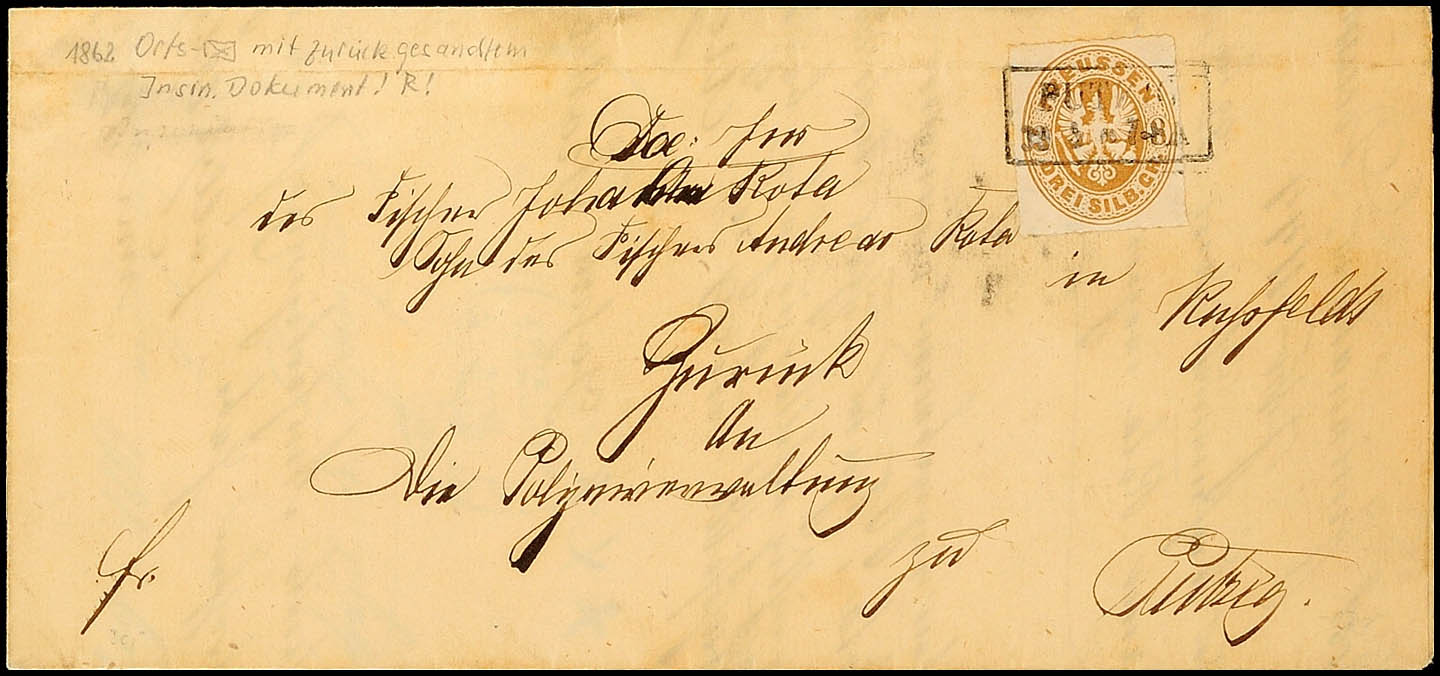 1862 Orts- mit zurückgesandtem
Insin. Dokument! R!
PREUSSEN
DREI SILB. GR.
PUT
13 7-8A
Doc: Ins
des Fischer Johann Kota
Sohn des Fischers Andreas Kota
in
Zurück
An
Die Polizeiverwaltung
zu
Putzig.
fr.